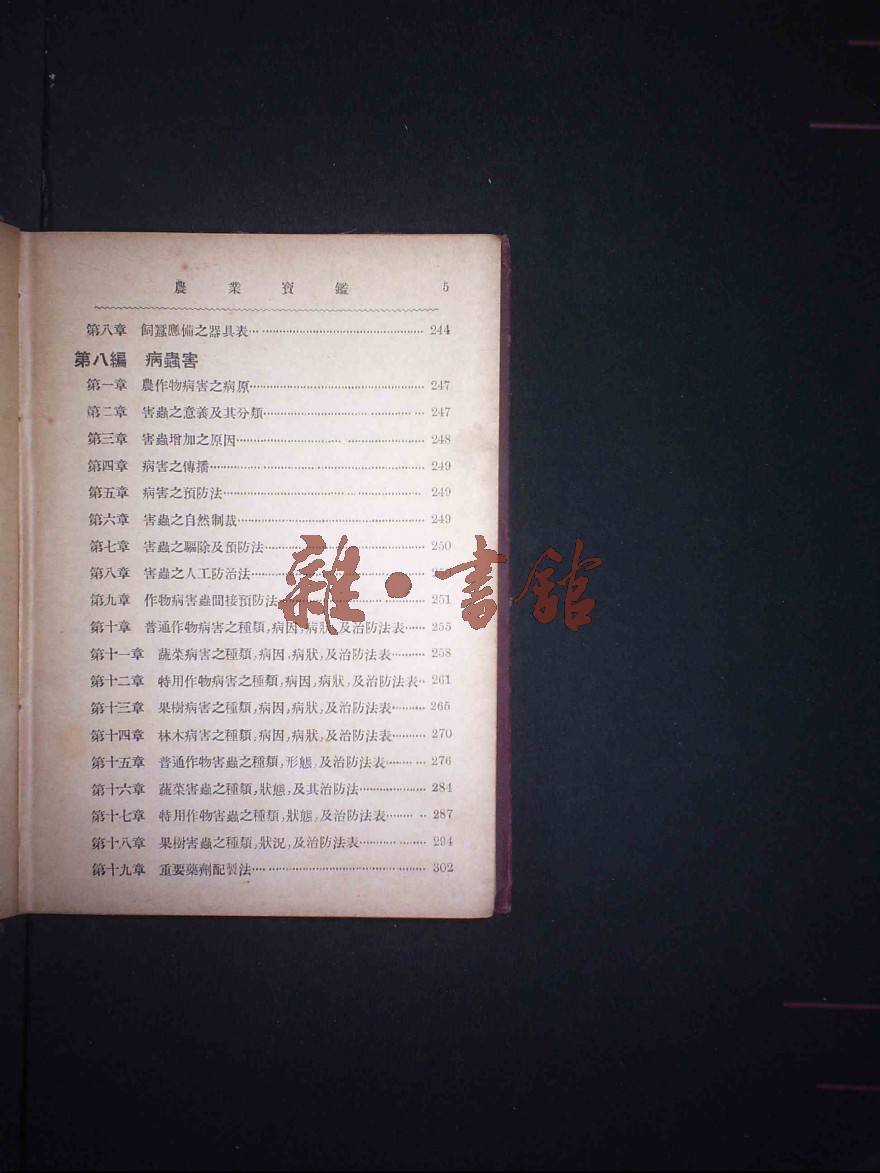 農業寶鑑 5
第八章 飼蠶應備之器具表 244
第八編 病蟲害
第一章 農作物病害之病原 247
第二章 害蟲之意義及其分類 247
第三章 害蟲增加之原因 248
第四章 病害之傳播 249
第五章 病害之預防法 249
第六章 害蟲之自然制裁 249
第七章 害蟲之驅除及預防法 250
第八章 害蟲之人工防治法
第九章 作物病害蟲間接預防法 251
第十章 普通作物病害之種類,病因,病狀,及治防法表 255
第十一章 蔬菜病害之種類,病因,病狀,及治防法表 258
第十二章 特用作物病害之種類,病因,病狀,及治防法表 261
第十三章 果樹病害之種類,病因,病狀,及治防法表 265
第十四章 林木病害之種類,病因,病狀,及治防法表 270
第十五章 普通作物害蟲之種類,形態,及治防法表 276
第十六章 蔬菜害蟲之種類,狀態,及其治防法 284
第十七章 特用作物害蟲之種類,狀態,及治防法表 287
第十八章 果樹害蟲之種類,狀況,及治防法表 294
第十九章 重要藥劑配製法 302
雜·書館